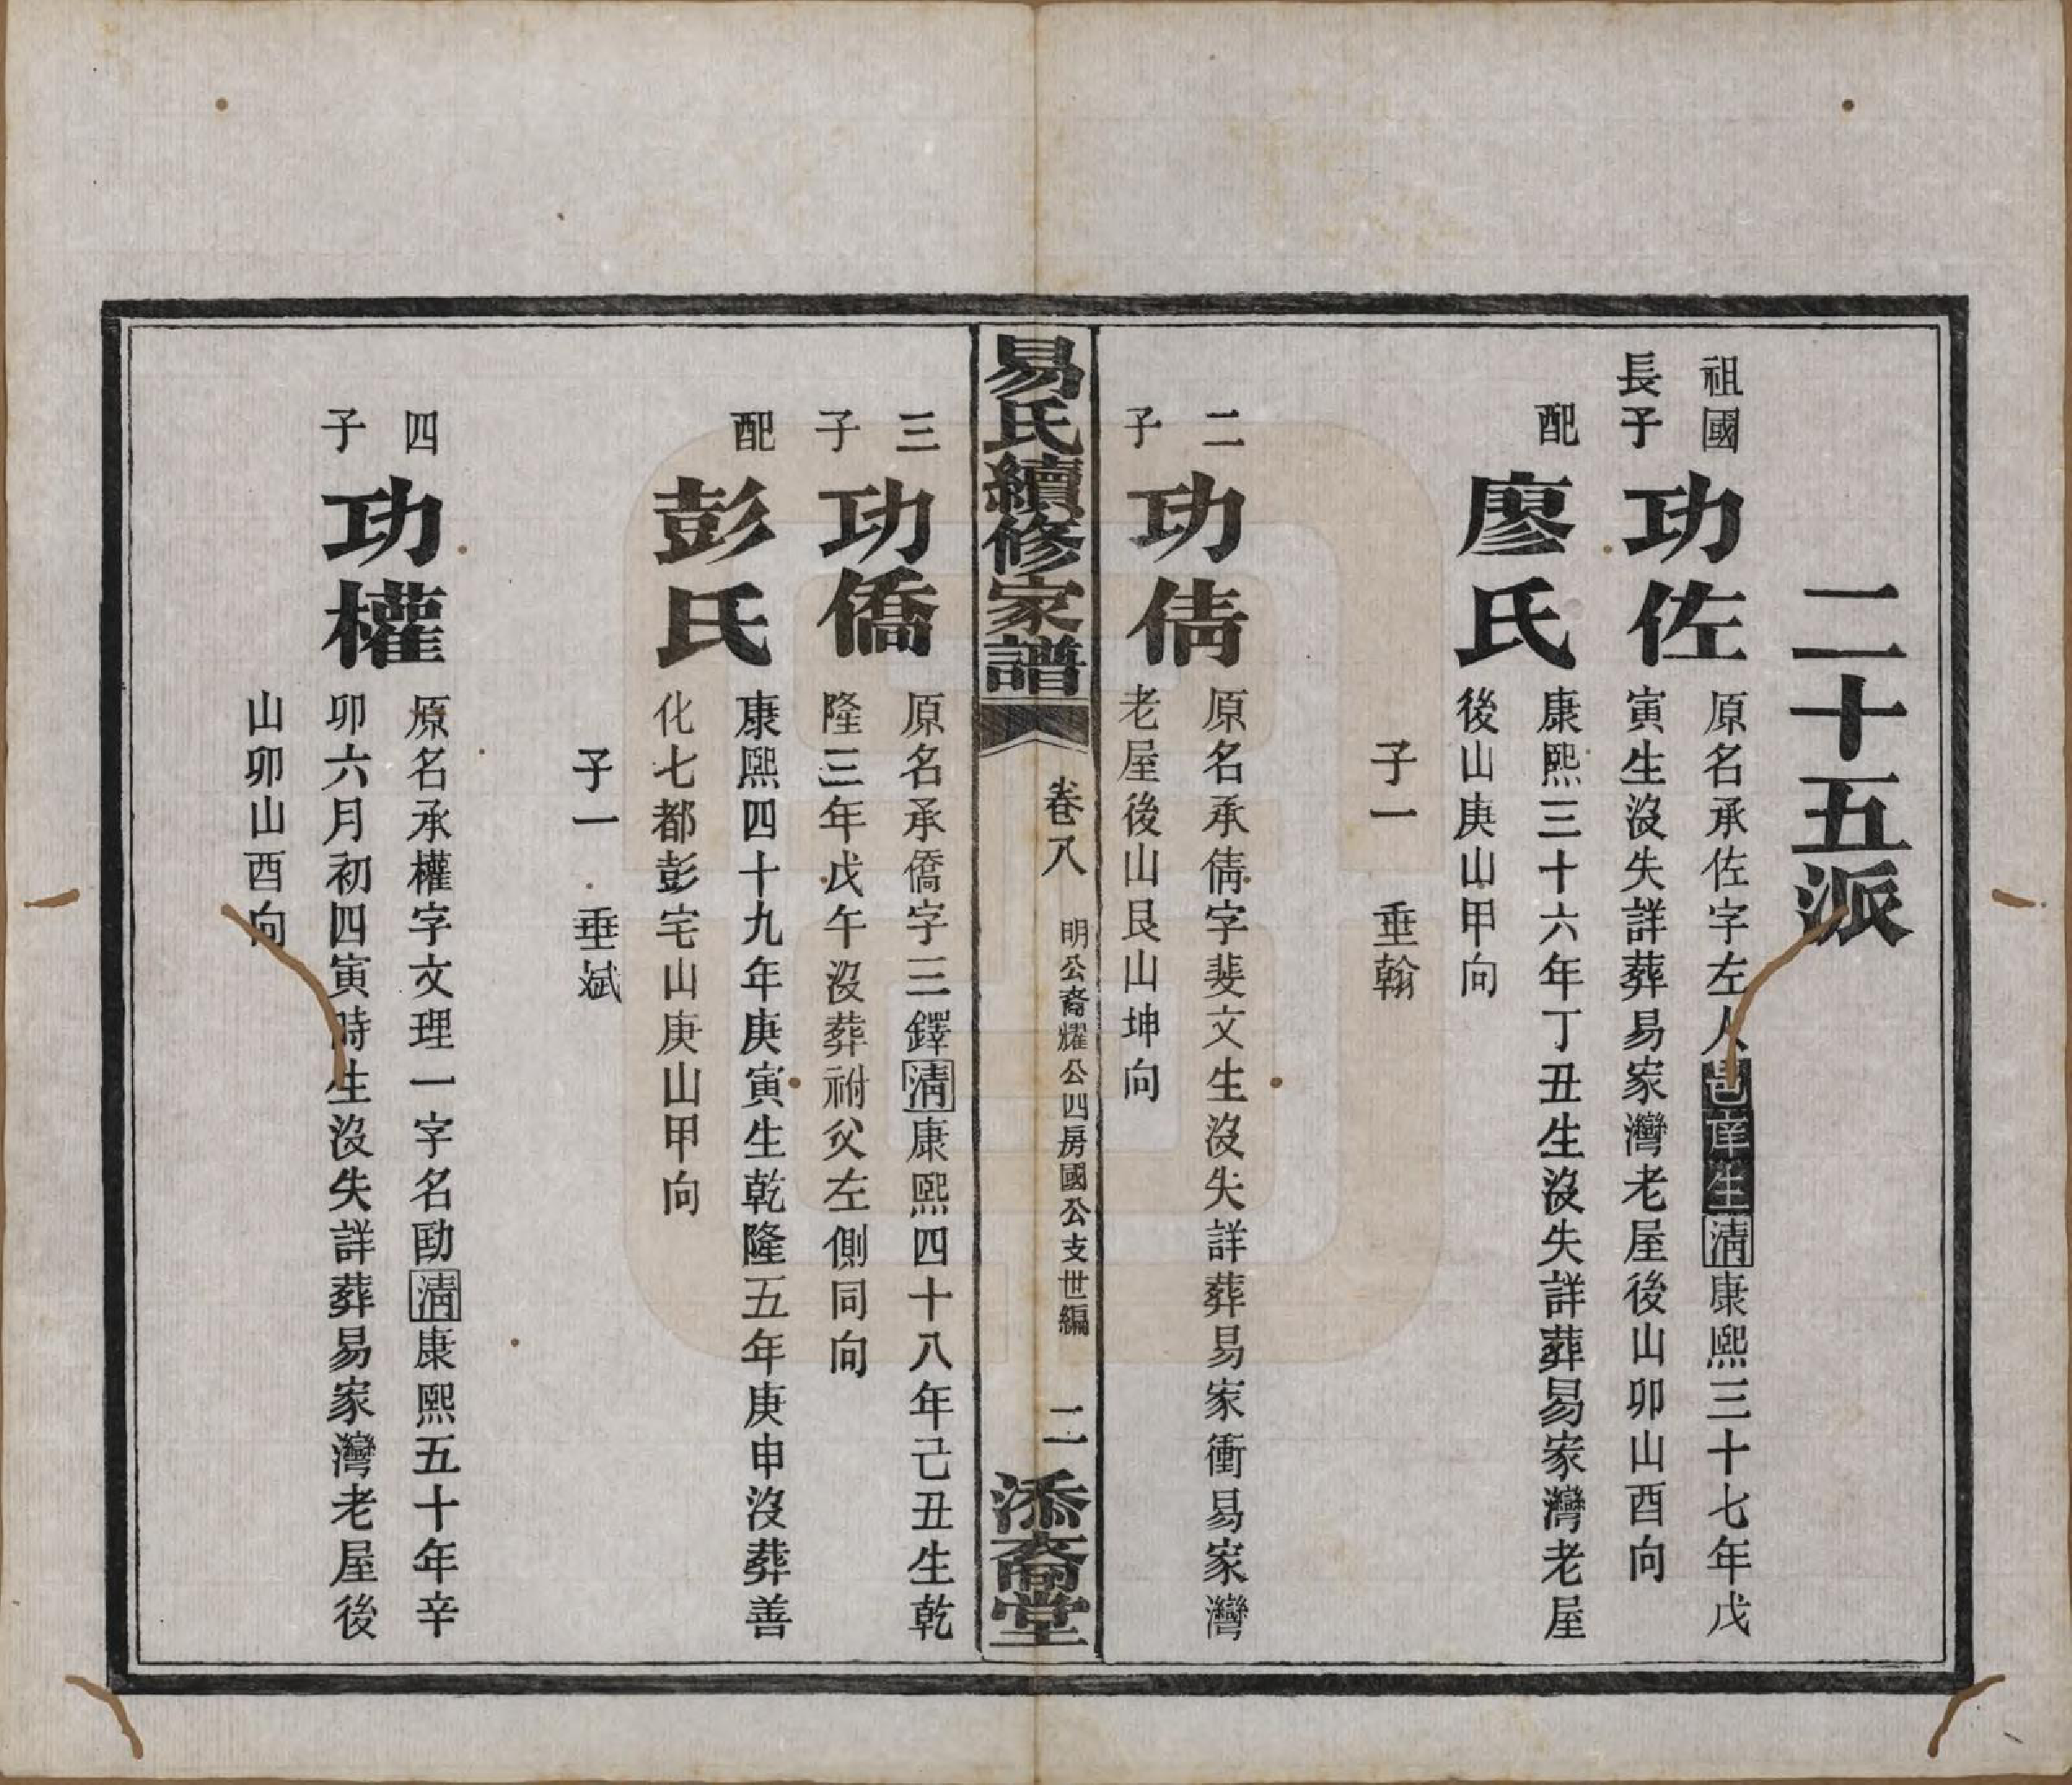 二十五派
祖國長子
功佐
原名承佐字左人邑庠生清康熙三十七年戊
寅生沒失詳葬易家灣老屋後山卯山酉向
配
廖氏
康熙三十六年丁丑生沒失詳葬易家灣老屋
後山庚山甲向
子一　垂翰
二子
功倩
原名承倩字斐文生沒失詳葬易家衝易家灣
老屋後山艮山坤向
易氏續修家譜
卷八
明公裔耀公四房國公支世編
二
添裔堂
三子
功僑
原名承僑字三鐸清康熙四十八年己丑生乾
隆三年戊午沒葬祔父左側同向
配
彭氏
康熙四十九年庚寅生乾隆五年庚申沒葬善
化七都彭宅山庚山甲向
子一　垂斌
四子
功權
原名承權字文理一字名勛清康熙五十年辛
卯六月初四寅時生沒失詳葬易家灣老屋後
山卯山酉向